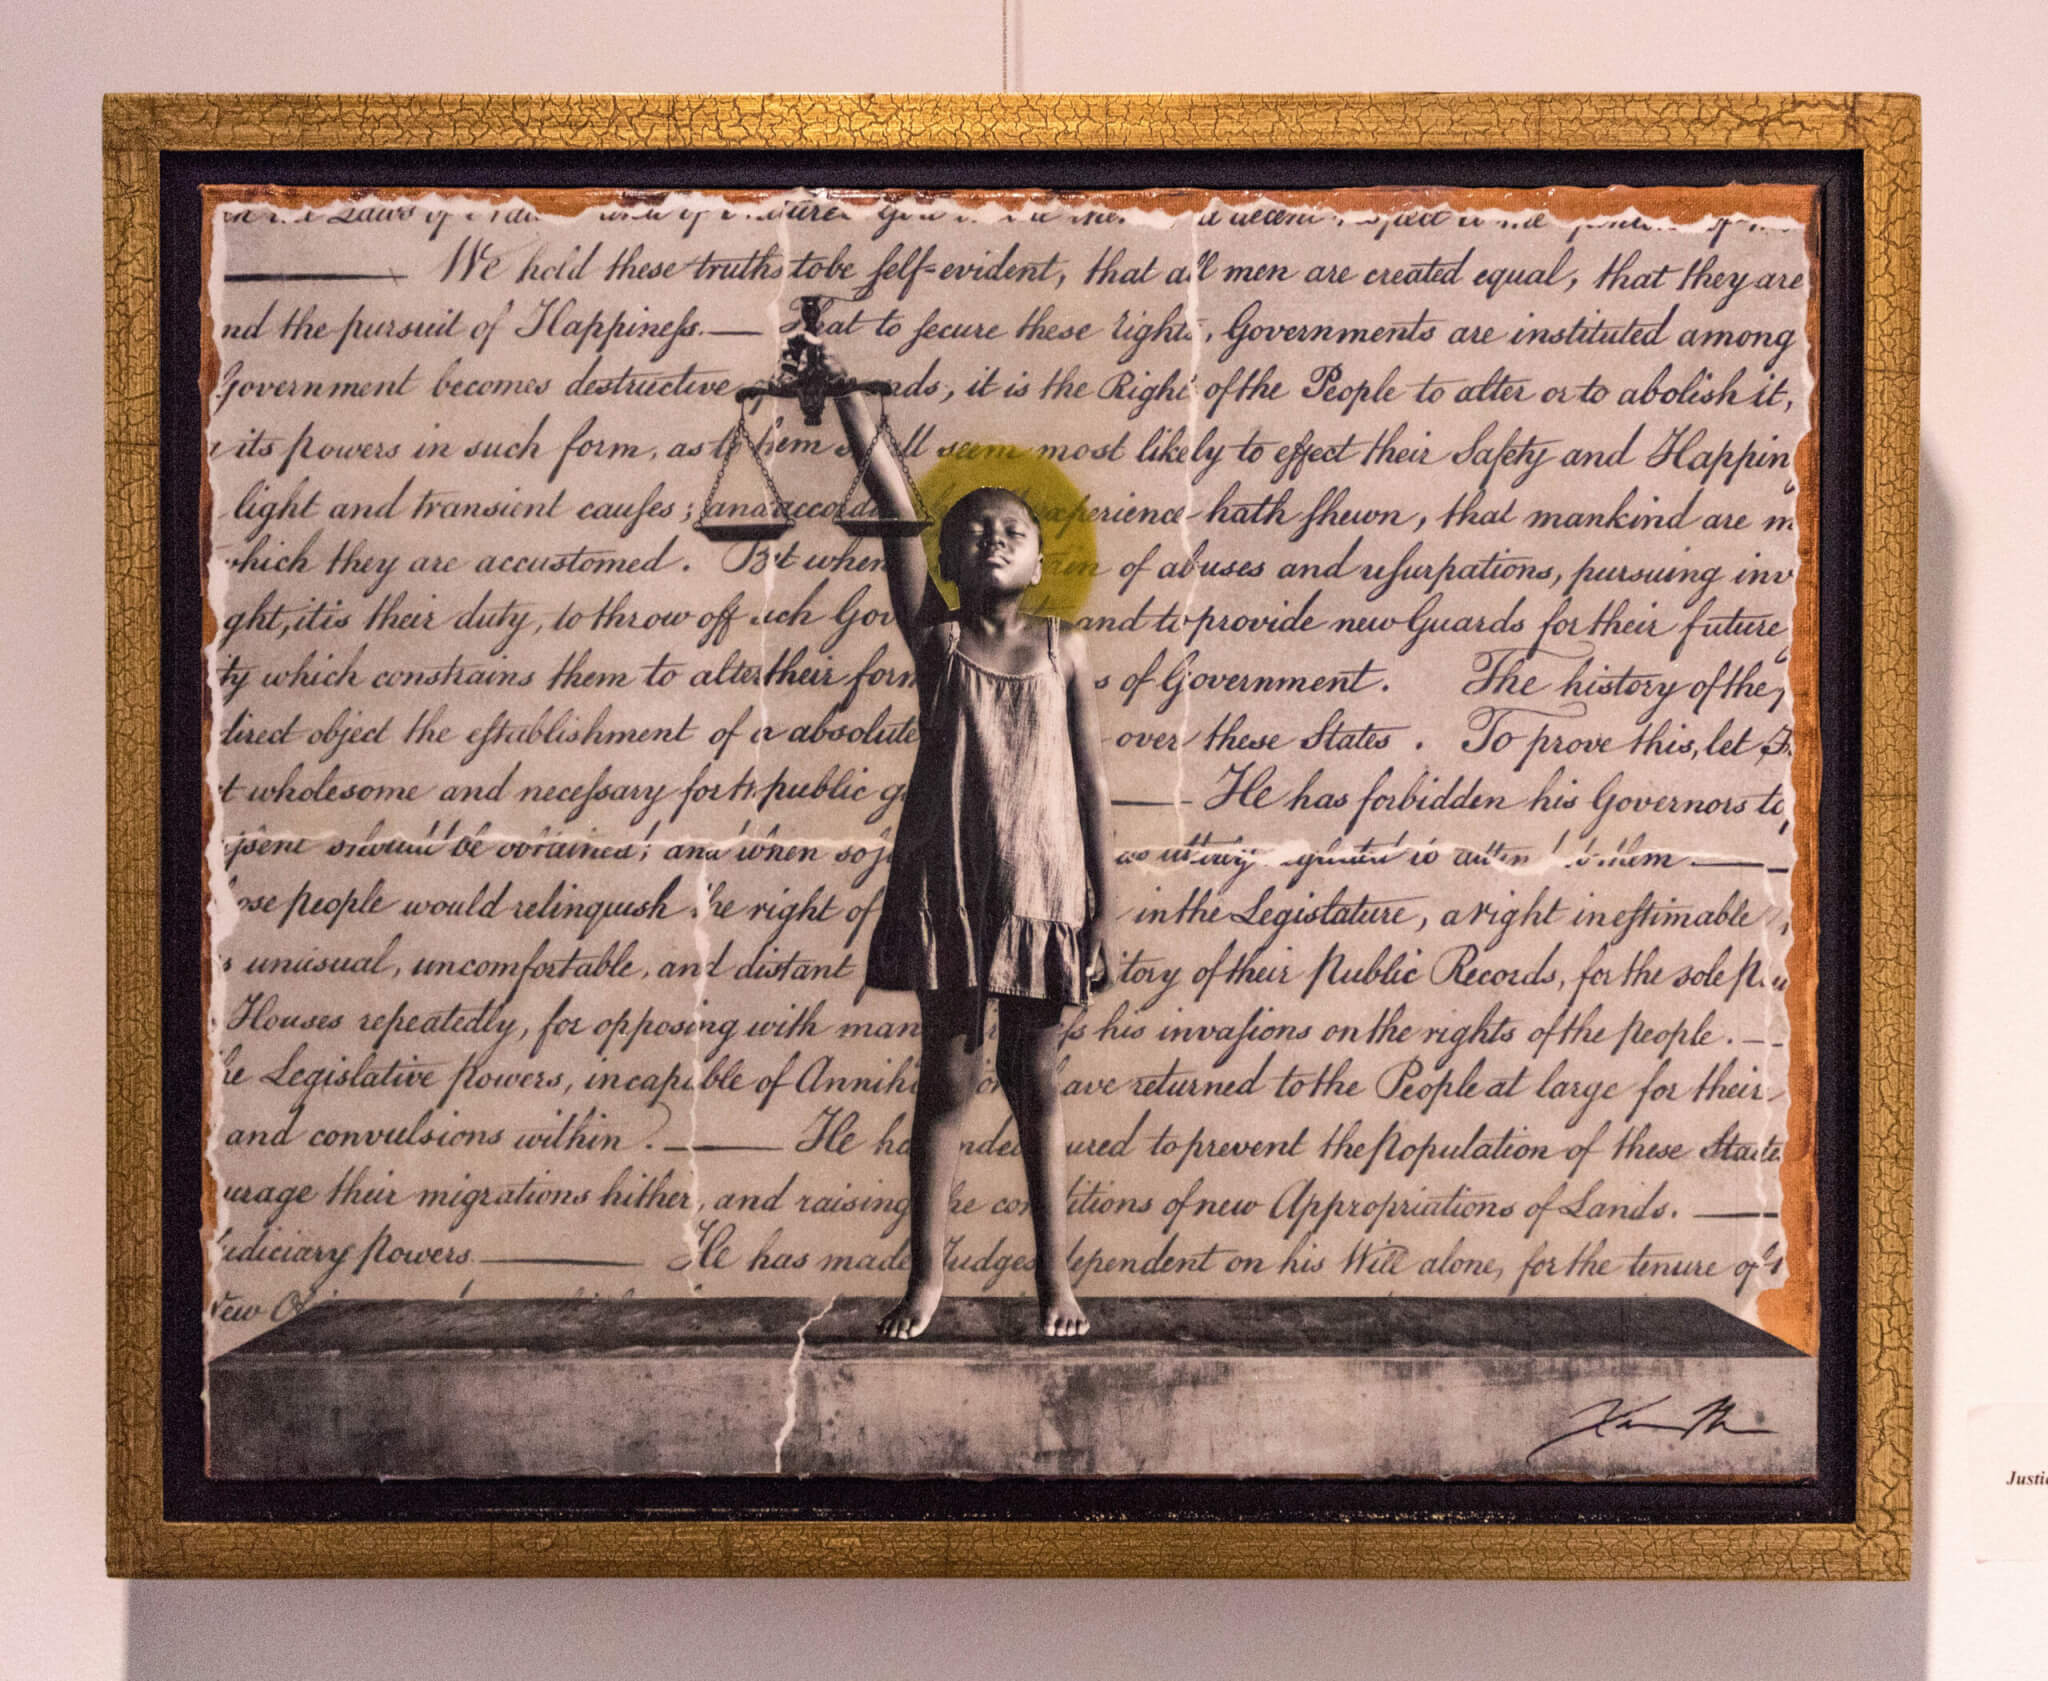 We hold these truths tobe self=evident, that all men are created equal, that they are
nd the pursuit of Happiness. — That to secure these rights, Governments are instituted among
Government becomes destructive ends, it is the Right of the People to alter or to abolish it,
its powers in such form, as to them shall seem most likely to effect their Safety and Happin
light and transient causes; and experience hath shewn, that mankind are m
which they are accustomed. But when of abuses and usurpations, pursuing inv
ght, it is their duty, to throw off such Gov and to provide new Guards for their future
ty which constrains them to alter their form s of Government. The history of the
direct object the establishment of a absolute over these States. To prove this, let
t wholesome and necessary for public g — He has forbidden his Governors to
should be obtained; and when so to attend to them —
ose people would relinquish the right of in the Legislature, a right inestimable
unusual, uncomfortable, and distant itory of their Public Records, for the sole
Houses repeatedly, for opposing with man his invasions on the rights of the people. —
he Legislative powers, incapable of Annihi have returned to the People at large for their
and convulsions within. — He ha ured to prevent the Population of these States
urage their migrations hither, and raising the conditions of new Appropriations of Lands. —
udiciary powers. — He has made Judges dependent on his Will alone, for the tenure of
Justi